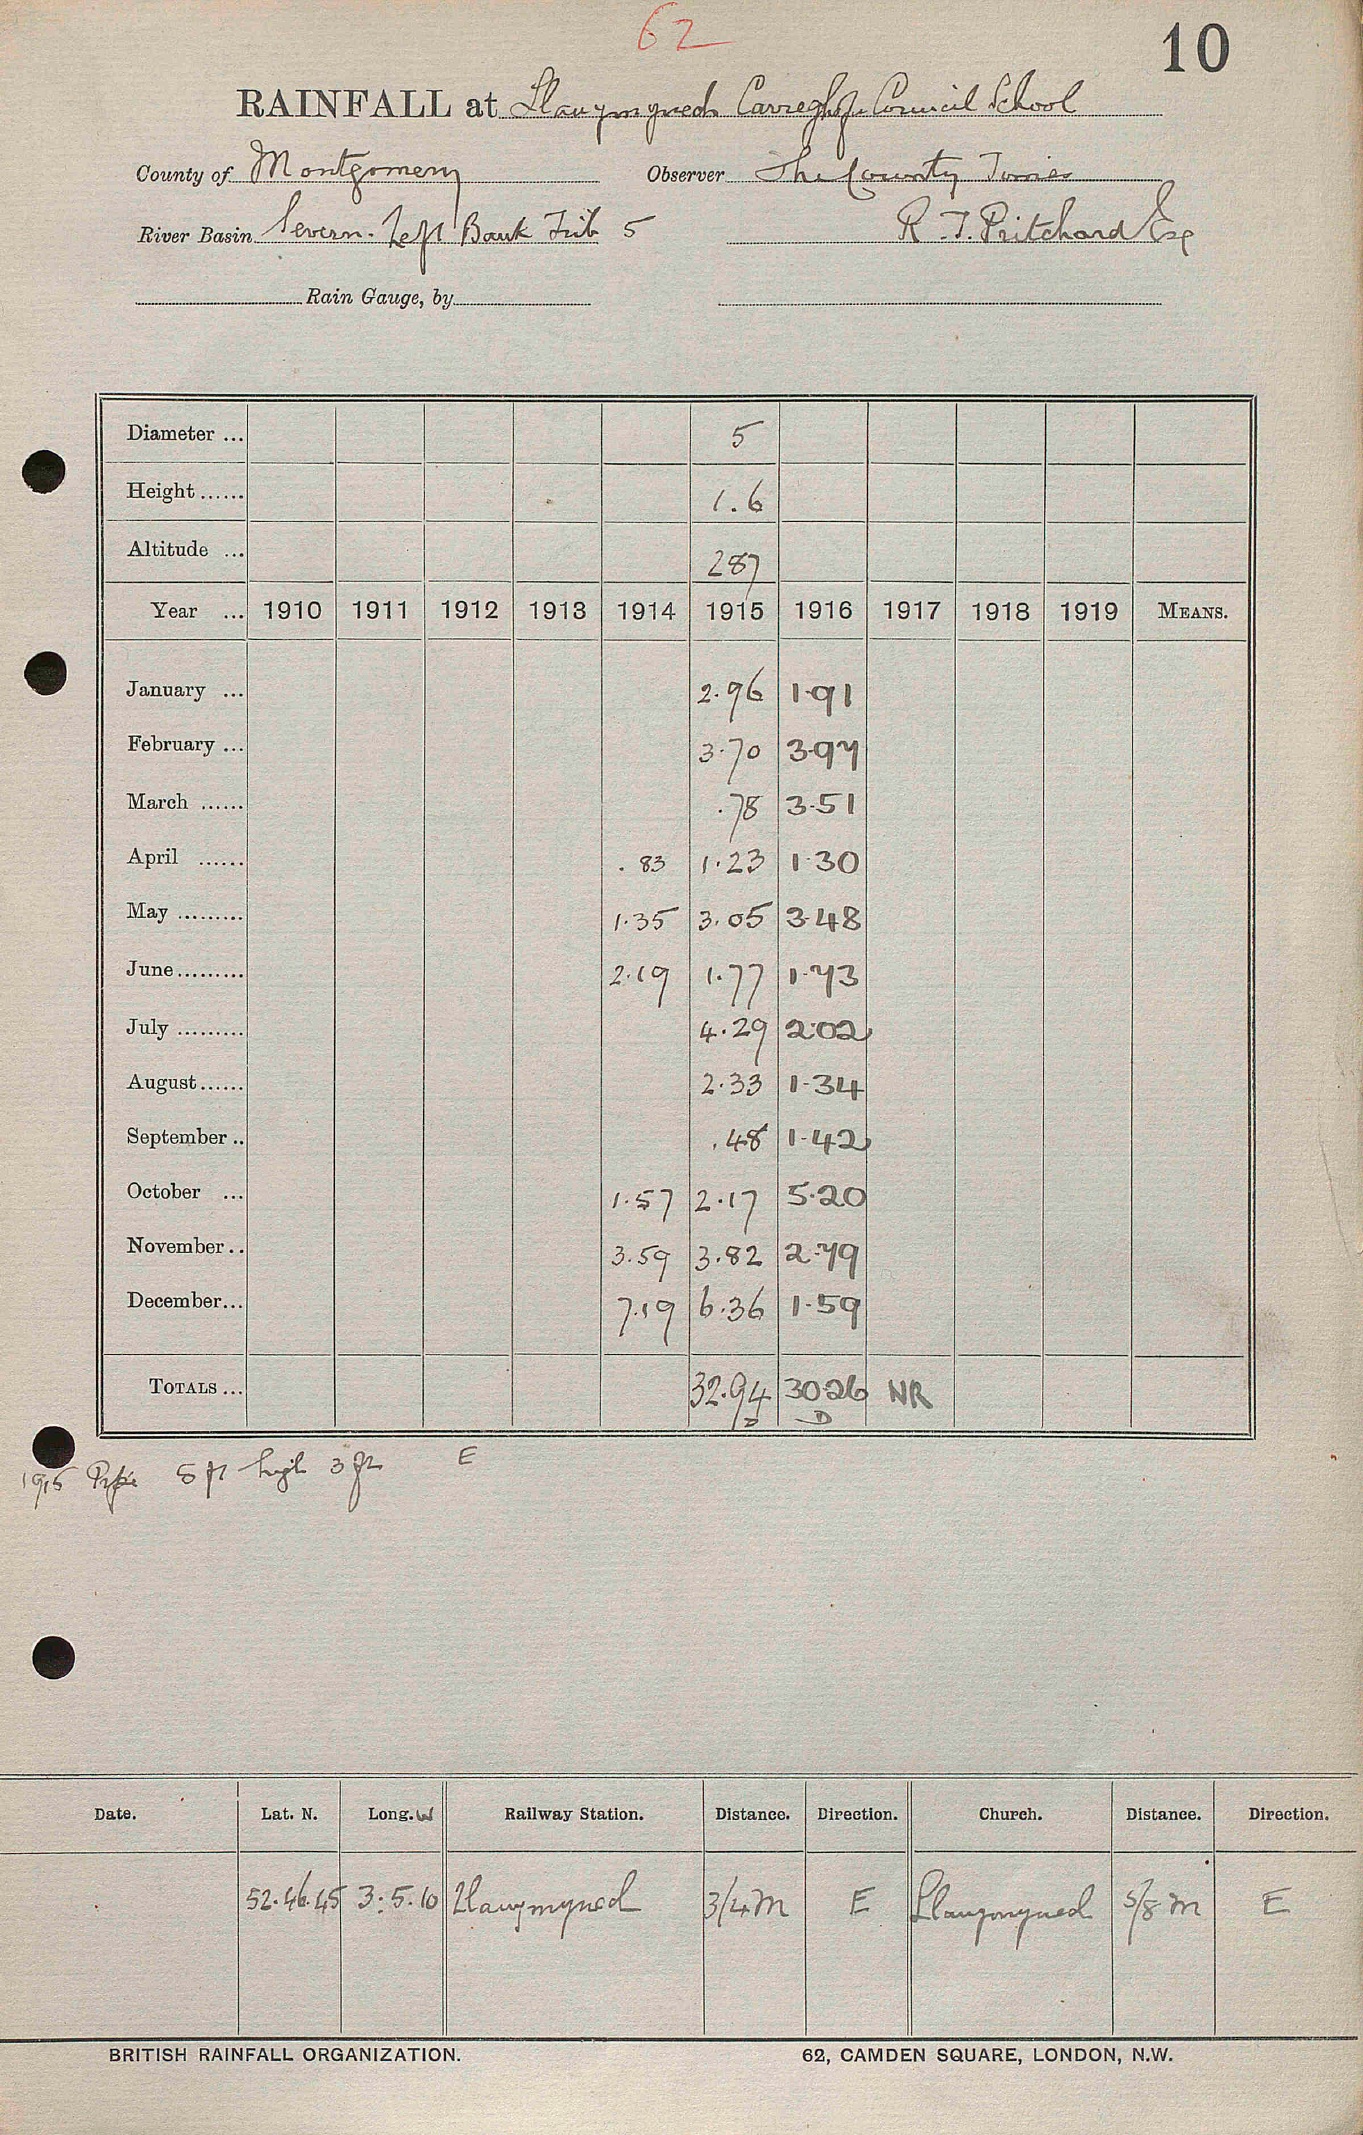 62
10
RAINFALL at Llanymynech Carreghofa Council School
County of Montgomery Observer The County Times
River Basin Severn. Left Bank Trib 5 R. T. Pritchard Esq
Rain Gauge, by
Diameter ... 5
Height ...... 1.6
Altitude ... 287
Year ... 1910 1911 1912 1913 1914 1915 1916 1917 1918 1919 MEANS.
January ... 2.96 1.91
February ... 3.70 3.97
March ...... .78 3.51
April ...... .83 1.23 1.30
May ......... 1.35 3.05 3.48
June ......... 2.19 1.77 1.73
July ......... 4.29 2.02
August ...... 2.33 1.34
September .. .48 1.42
October ... 1.57 2.17 5.20
November .. 3.59 3.82 2.79
December ... 7.19 6.36 1.59
TOTALS ... 32.94 30.26 NR
D D
1915 5 ft high 3 ft E
Date. Lat. N. Long. W Railway Station. Distance. Direction. Church. Distance. Direction.
52.46.45 3.5.10 Llanymynech 3/4 M E Llanymynech 5/8 M E
BRITISH RAINFALL ORGANIZATION. 62, CAMDEN SQUARE, LONDON, N.W.